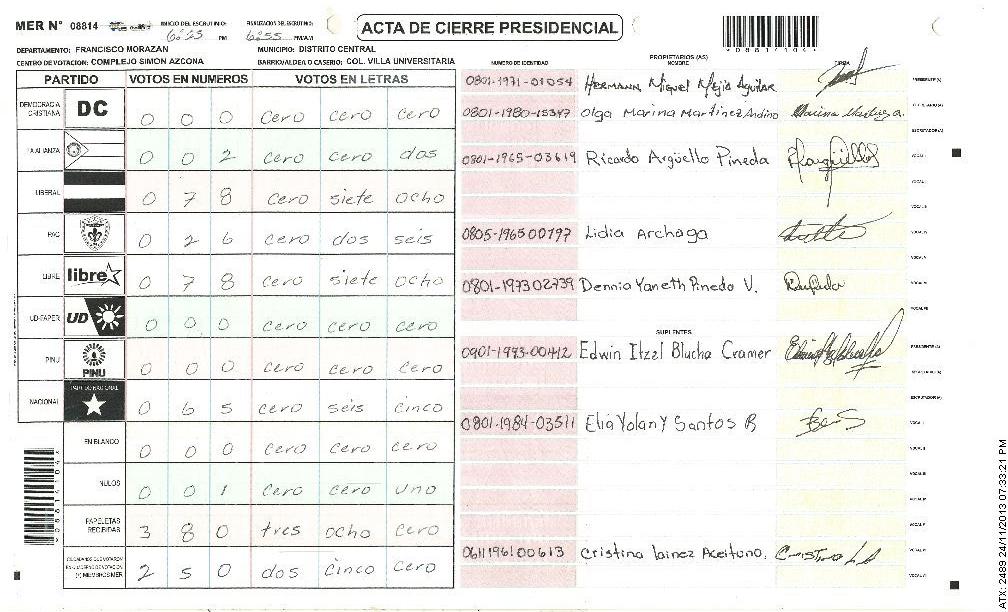 MER N° 08814
INICIO DEL ESCRUTINIO:
PM
FINALIZACION DEL ESCRUTINIO:
6:55 PM/AM
ACTA DE CIERRE PRESIDENCIAL
DEPARTAMENTO: FRANCISCO MORAZAN
MUNICIPIO: DISTRITO CENTRAL
CENTRO DE VOTACION: COMPLEJO SIMON AZCONA
BARRIO/ALDEA O CASERIO: COL. VILLA UNIVERSITARIA
PARTIDO VOTOS EN NUMEROS VOTOS EN LETRAS
DEMOCRACIA CRISTIANA DC 0 0 0 cero cero cero
LA ALIANZA 0 0 2 cero cero dos
LIBERAL 0 7 8 cero siete ocho
PAC 0 2 6 cero dos seis
LIBRE libre 0 7 8 cero siete ocho
UD-FAPER UD 0 0 0 cero cero cero
PINU PINU 0 0 0 cero cero cero
NACIONAL PARTIDO NACIONAL 0 6 5 cero seis cinco
EN BLANCO 0 0 0 cero cero cero
NULOS 0 0 1 cero cero uno
PAPELETAS RECIBIDAS 3 8 0 tres ocho cero
2 5 0 dos cinco cero
NUMERO DE IDENTIDAD
PROPIETARIOS (AS)
NOMBRE
FIRMA
0801-1971-01054 Hermann Miguel Mejia Aguilar
0801-1980-15347 Olga Marina Martinez Andino
0801-1965-03619 Ricardo Argüello Pineda
0805-196500797 Lidia Archaga
0801-197302739 Dennia Yaneth Pinedo V.
SUPLENTES
0901-1973-00412 Edwin Itzel Blucha Cramer
0801-1984-03511 Elia Yolany Santos R
0611196100613 Cristina Lainez Aceituno.
08814104
ATX-2489 24/11/2013 07:33:21 PM